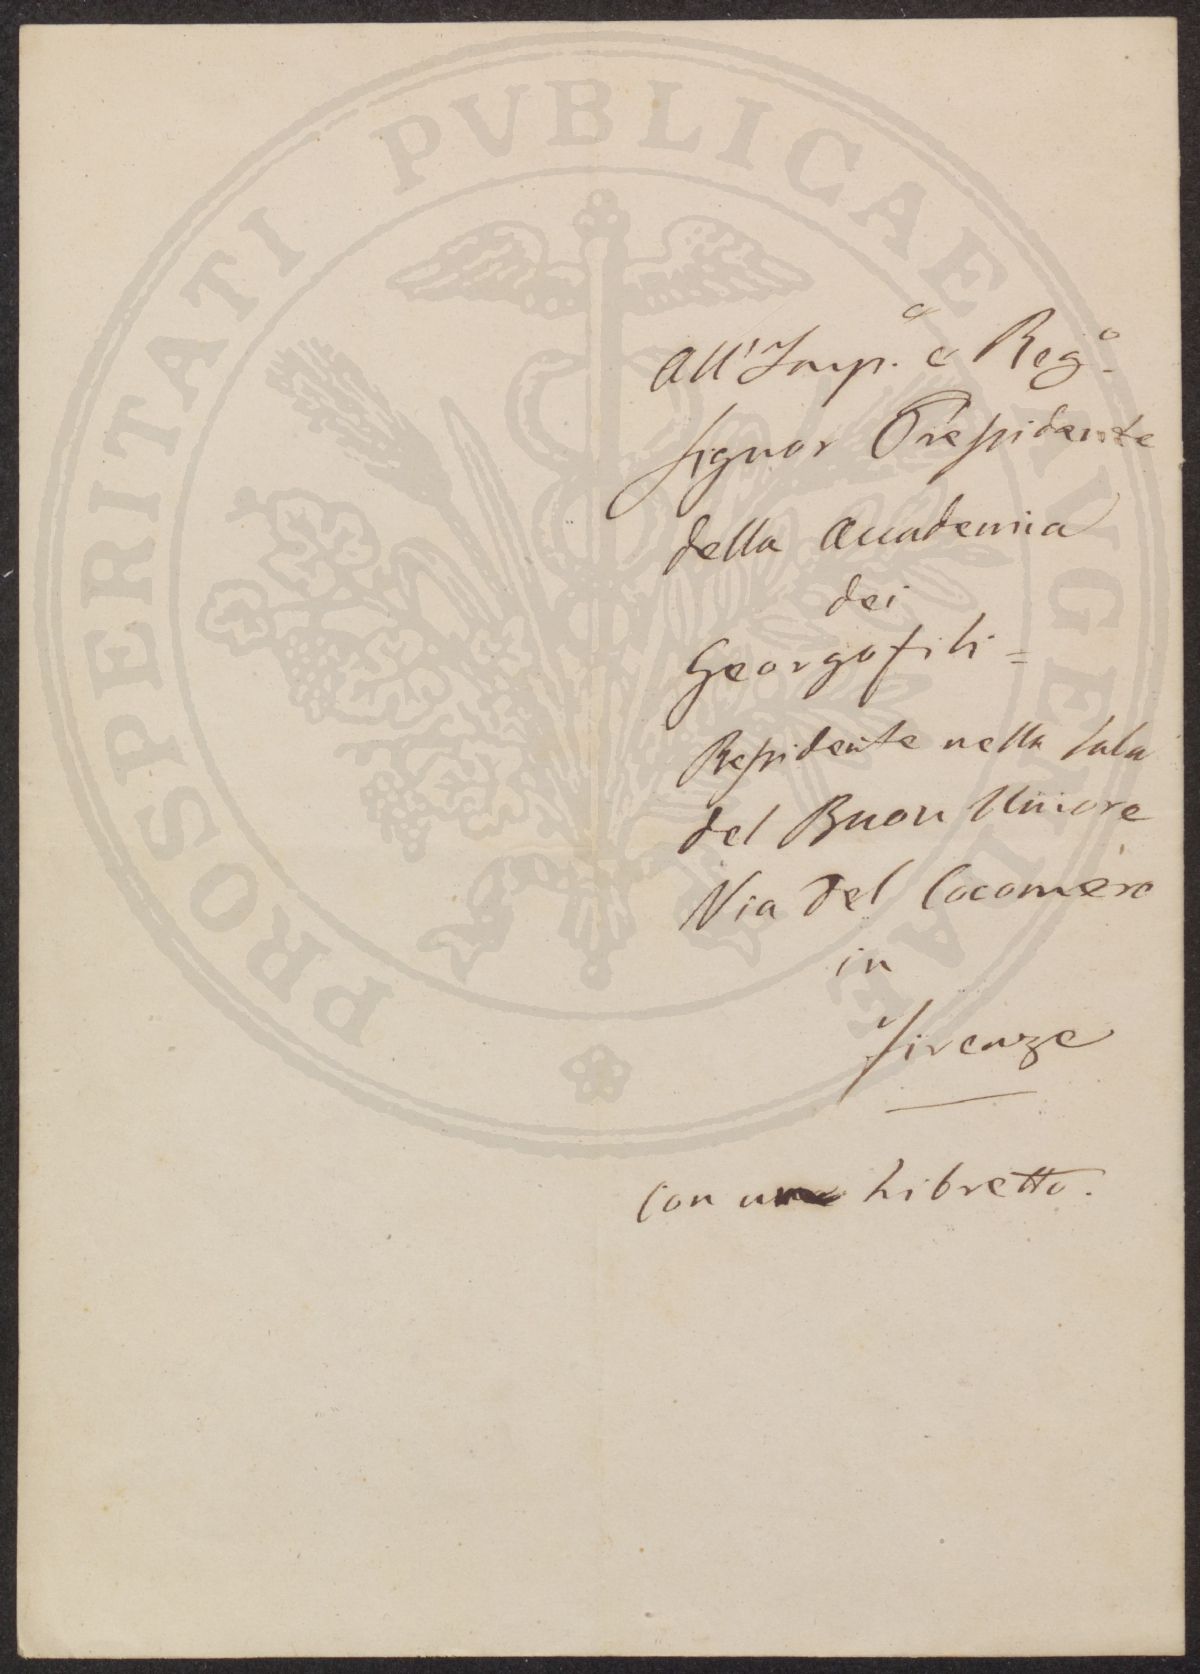 PROSPERITATI PVBLICAE AVGENDAE
All'Imp.e e Reg.o
Signor Pressidente
della Accademia
dei
Georgofili =
Ressidente nella Sala
del Buon Umore
Via del Cocomero
in
Firenze
Con uno Libretto.